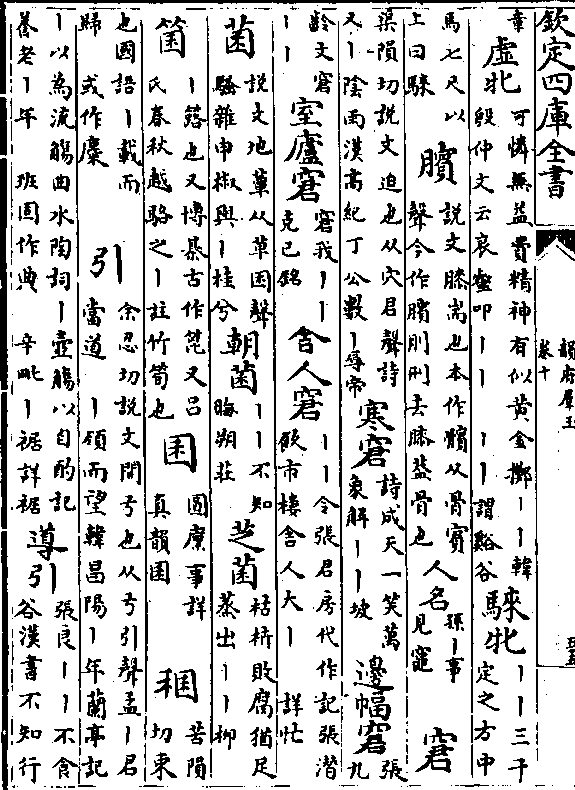 欽定四庫全書
韻府羣玉
卷十
章
虛牝
可憐無益費精神有似黄金擲丨丨韓
殷仲文云哀壑叩丨丨 丨丨謂谿谷
騋牝
丨丨三千
定之方中
馬七尺以
上曰騋
臏
說文膝耑也本作髕从骨賓
聲今作臏刖刑去膝葢骨也
人名
孫丨事
見竈
窘
渠隕切說文迫也从穴君聲詩
又丨陰雨漢高紀丁公數丨辱帝
寒窘
詩成天一笑萬
象解丨丨坡
邊幅窘
張
九
齡文窘
丨丨
室廬窘
窘我丨丨
克己銘
舍人窘
丨丨令張君房代作記張潛
飲市樓舍人大丨 詳忙
菌
說文地蕈从草囷聲
騷雜申椒與丨桂兮
朝菌
丨丨不知
晦朔莊
芝菌
枯枿敗腐猶足
蒸出丨丨柳
箘
丨簬也又博棊古作箟又吕
氏春秋越駱之丨註竹筍也
囷
圓廩事詳
真韻囷
稇
苦隕
切束
也國語丨載而
歸 或作麇
引
余忍切說文開弓也从弓引聲孟丨君
當道 丨領而望韓昌陽丨年蘭亭記
丨以為流觴曲水陶詞丨壺觴以自酌記
養老丨年 班固作典 辛毗丨裾詳裾
導引
張良丨丨不食
谷漢書不知行